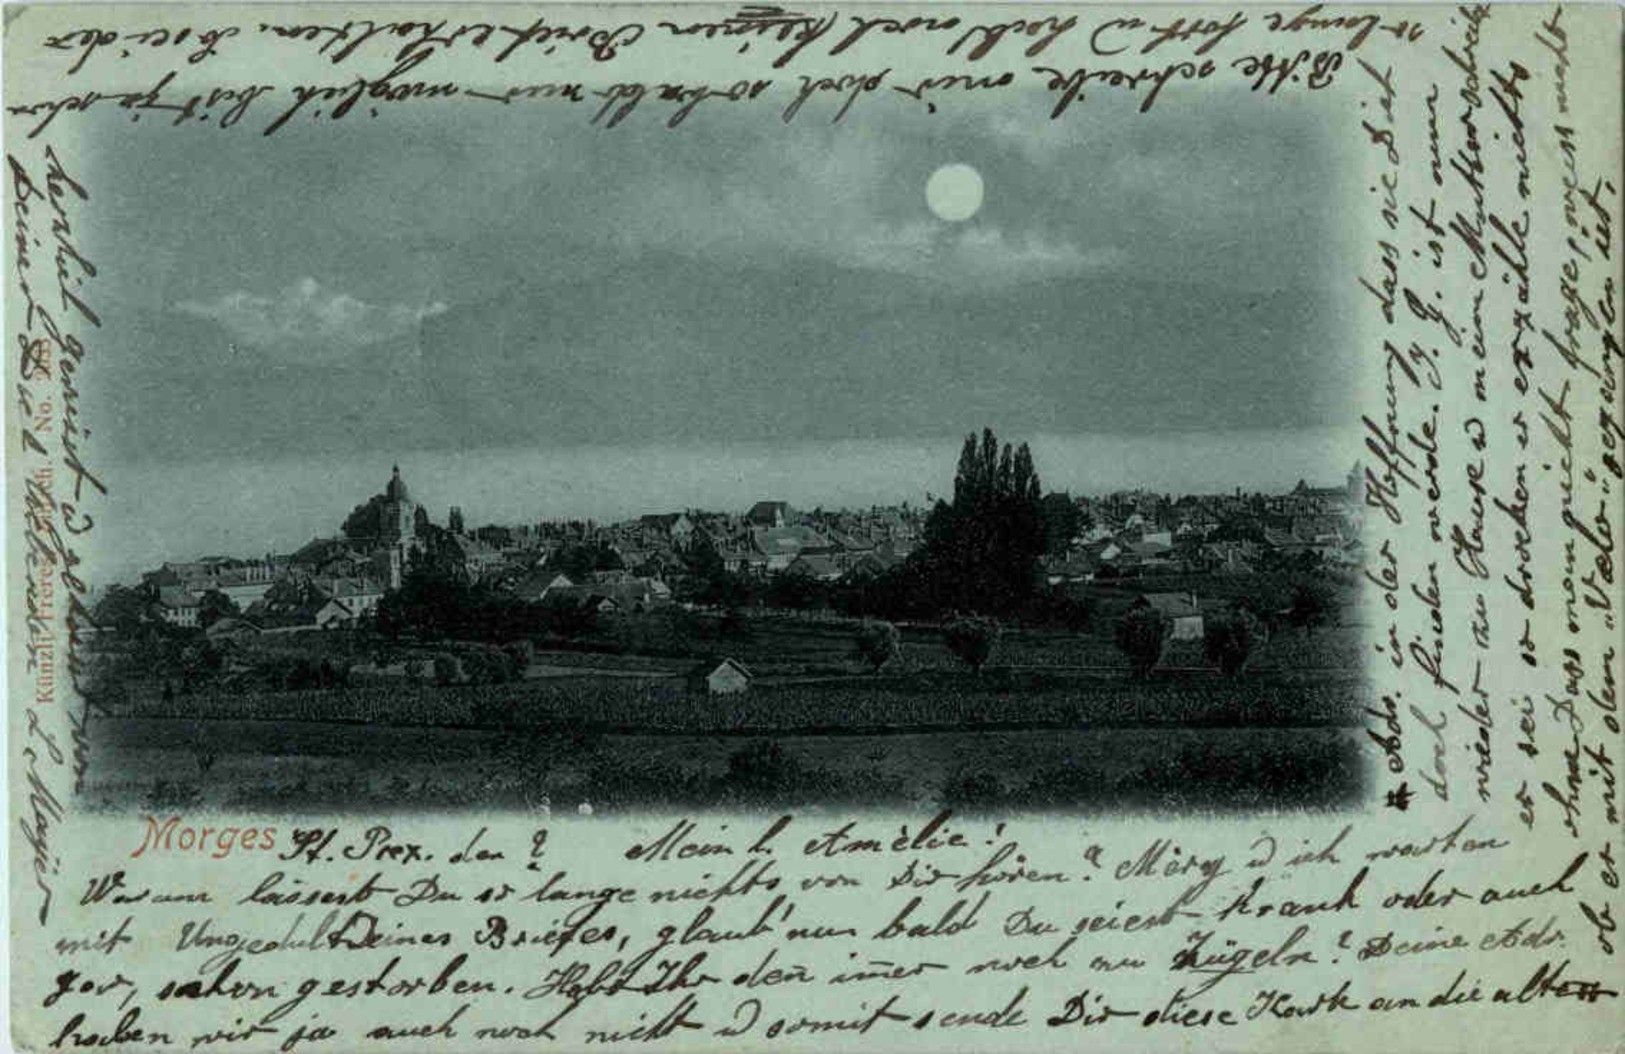 Morges
St. Prex. den ? Mein l. Amèlie!
Warum lässest Du so lange nichts von Dir hören? Mèry u ich warten
mit Ungedult Deines Briefes, glaub' nun bald Du seiest krank oder auch
gar, schon gestorben. Habt Ihr deñ im̃er noch zu zügeln? Deine Adr.
haben wir ja auch noch nicht u somit sende Dir diese Karte an die alte
Adr. in der Hoffnung dass sie Dich
doch finden werde. G. ist nun
wieder zu Hause u mein Mutter schreibt
er sei so drocken er erzähle nichts
ohne Dass man nicht frage, weiss nicht
ob er mit dem "Velo" gegangen ist.
Bitte schreibe mir doch sobald nur möglich bist ja schon
so lange fort u hab noch keinen Brief erhalten. So sei den
herzlich gegrüsst u geküsst von
Deiner Dich liebenden L. Mayer
Künzli Frères, Zürich. No.